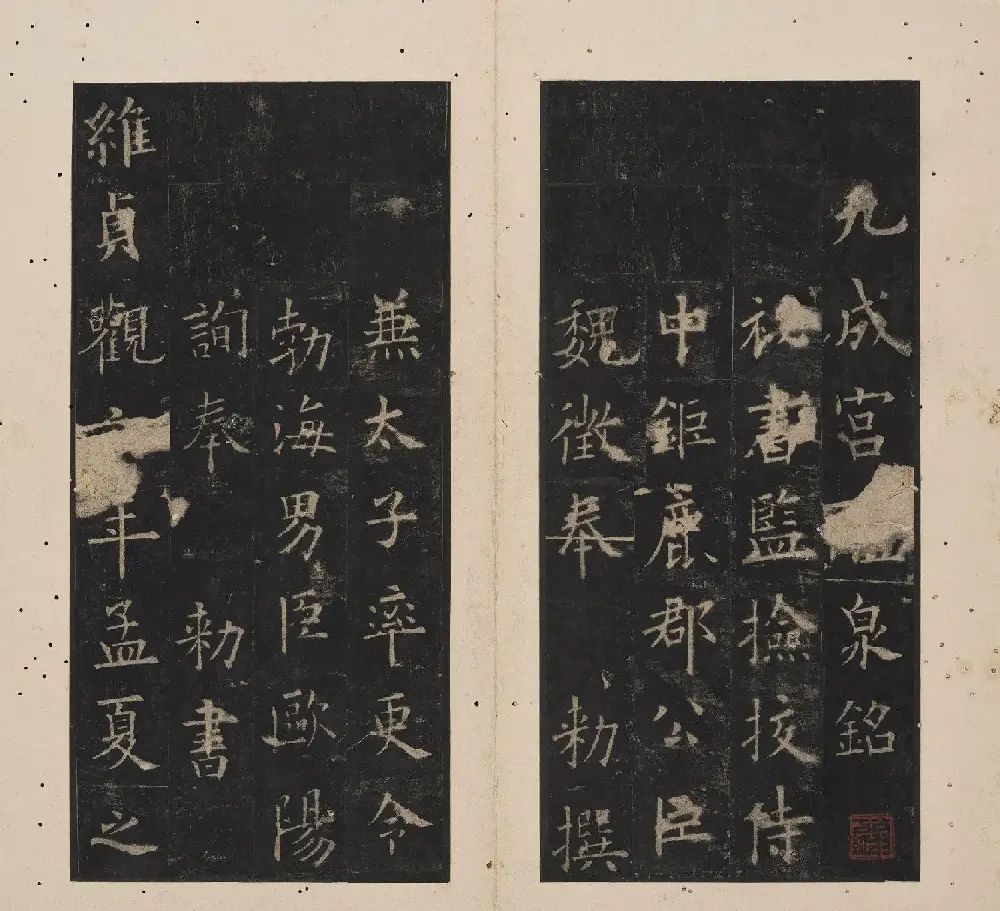 九成宮泉銘
祕書監撿挍侍
中鉅鹿郡公臣
魏徵奉 勅撰
兼太子率更令
勃海男臣歐陽
詢奉 勅書
維貞觀年孟夏之